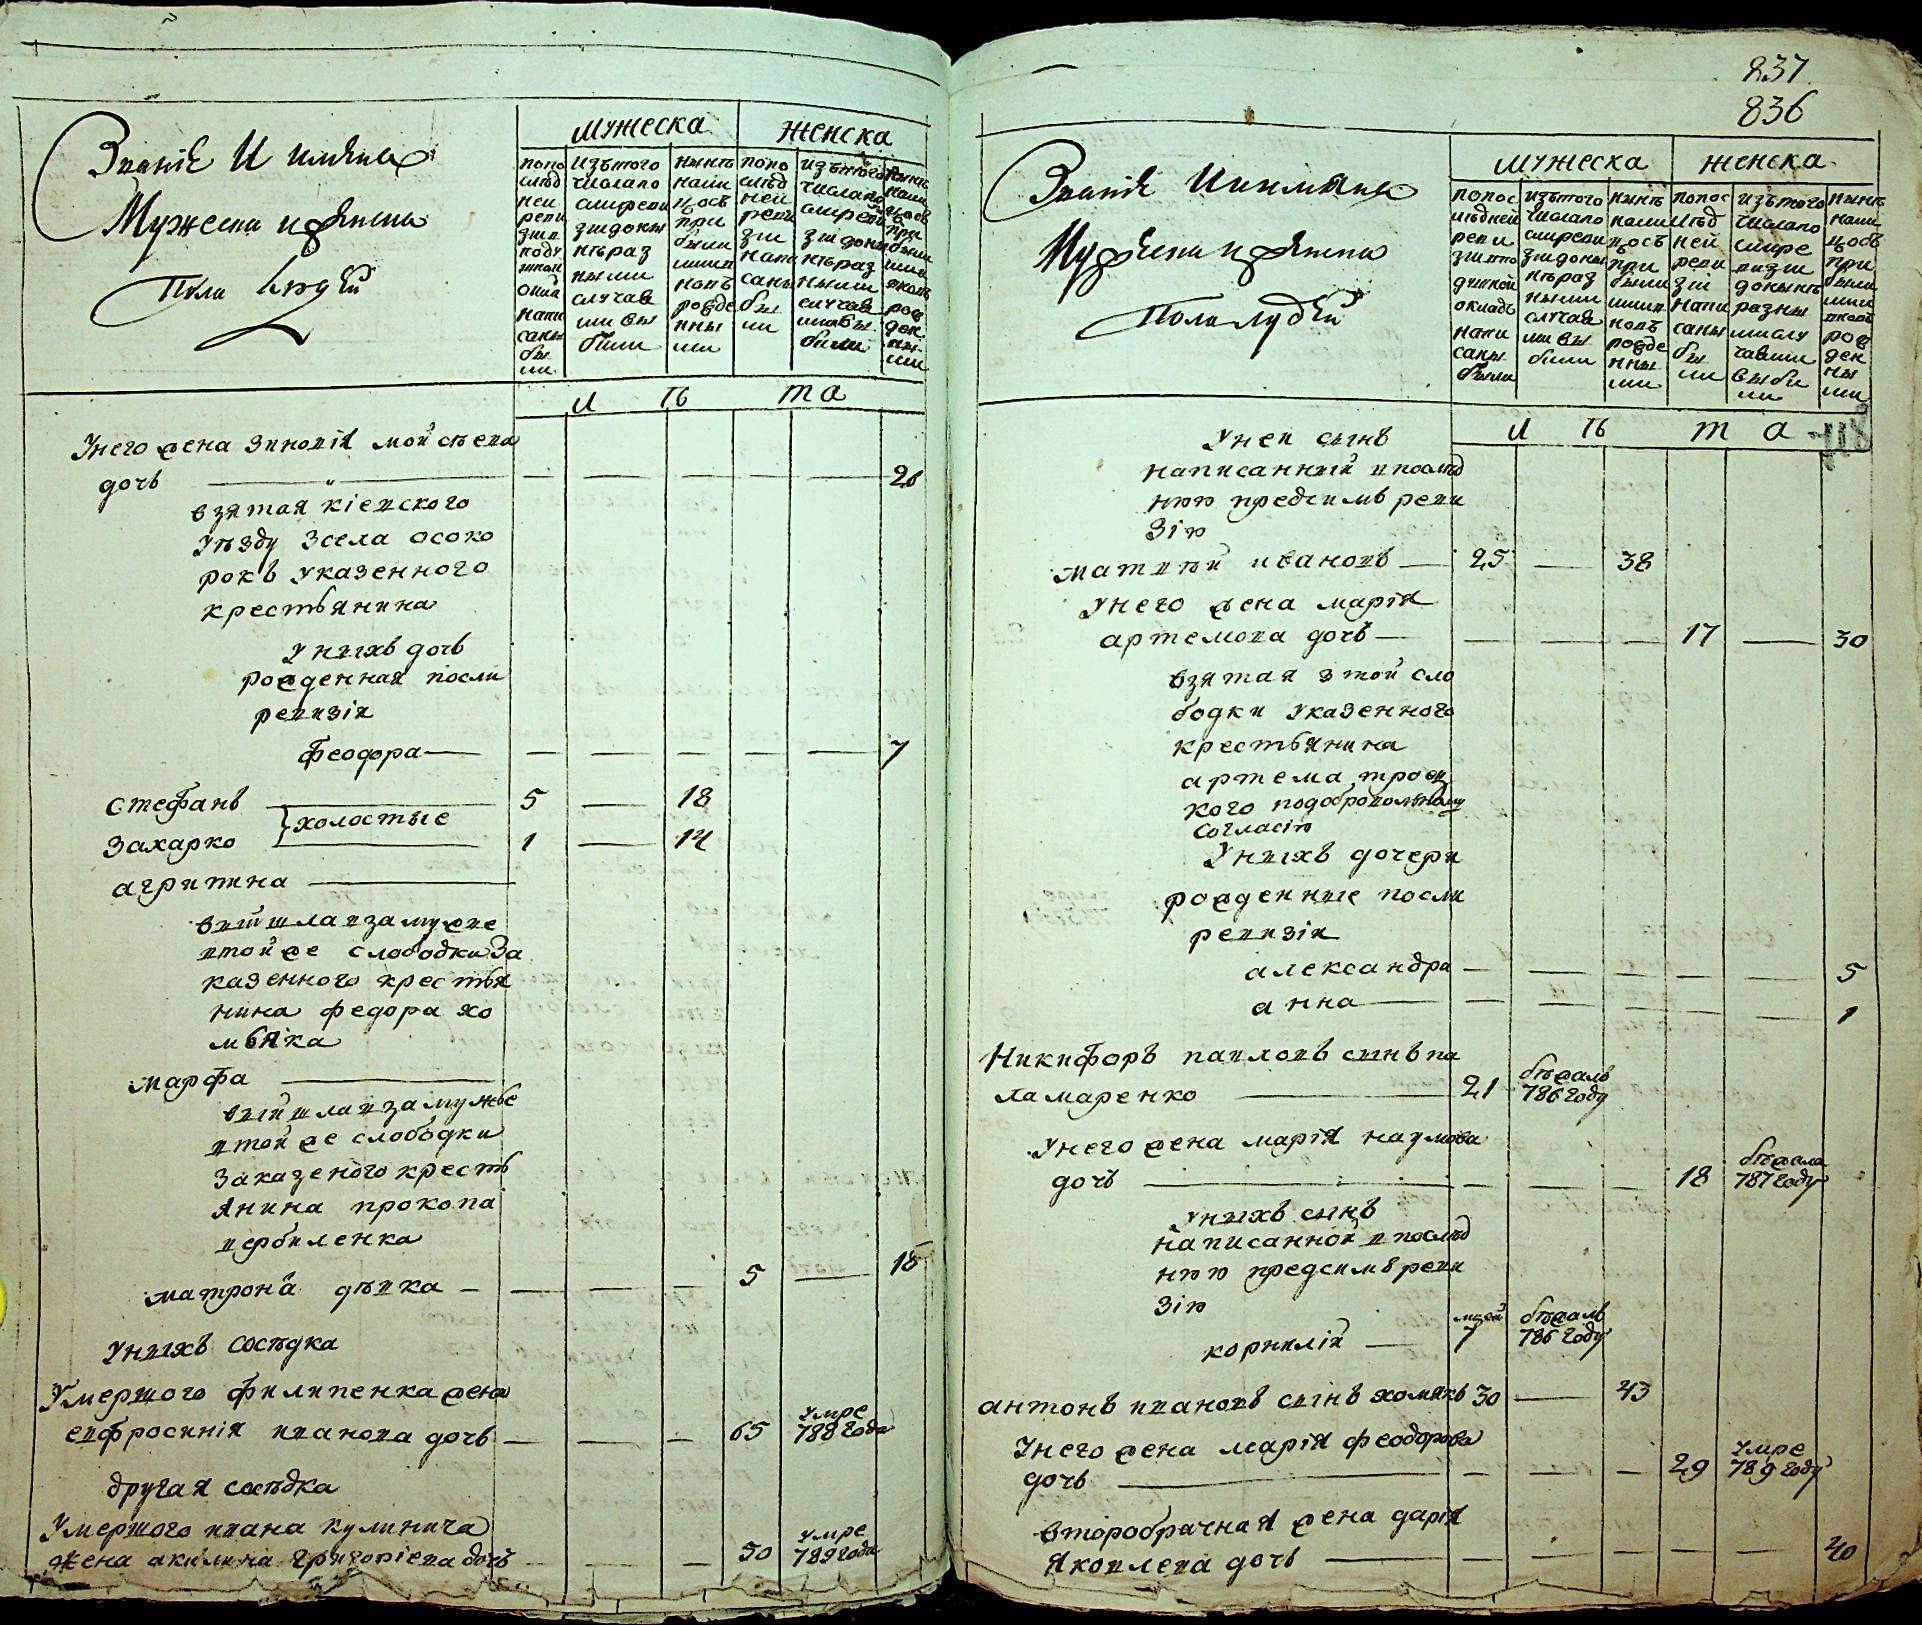 Званіе И имяна
Мужеска и женска
Пола людей
мужеска
женска
попо
слѣд
ней
реви
зіи в
поду
шной
оклад
напи
саны
бы
ли
изътого
числапо
слѣреви
зіидоны
нѣраз
ными
случая
ми вы
были
нынѣ
нали
цось
при
были
мии
новъ
рожде
нны
ми
попо
слѣд
ней
реви
зіи
напи
саны
бы
ли
изътого
числапо
слѣреви
зіидоны
нѣраз
ными
случая
мивы
были
нынѣ
нали
цось
при
были
ми
новъ
рож
ден
ны
ми
л ѣ т а
Унего жена зиновія мойсѣева
дочь 26
взятая кіевского
уѣзду зсела осоко
рокъ указенного
крестьянина
у нихъ дочь
рожденная посли
ревизіи
феодора 7
стефанъ 5 18
холостые
захарко 1 14
агрипина
вышла взамужже
втойже слободки за
казенного крестья
нина федора хо
мьяка
марфа
вышла взамужье
втойже слободки
заказеного кресть
янина прокопа
вербиленка
матрона дѣвка 5 18
унихъ сосѣдка
Умершого филипенка жена
евфросинія иванова дочь 65 умре
788 года
другая сосѣдка
Умершого ивана кулинича
жена акилина григоріева дочь 50 умре
789 года
837
836
Званіе И имяна
Мужеска и женска
Пола людей
мужеска
женска
попос
лѣдней
реви
зіи впо
душной
окладъ
напи
саны
были
изътого
числапо
слѣреви
зіидоны
нѣраз
ными
случая
ми вы
были
нынѣ
нали
цось
при
были
мии
новъ
рожде
нны
ми
попос
лѣд
ней
реви
зіи
напи
саны
бы
ли
изътого
числапо
слѣре
визіи
донынѣ
разны
мислу
чаями
выбы
ли
нынѣ
нали
цось
при
были
ми
вновь
рож
ден
ны
ми
л ѣ т а
Унеи сынъ
написанный впослѣд
нюю предсимъ реви
зію
матвѣй ивановъ 25 38
Унего жена марія
артемова дочь 17 30
взятая зтой сло
бодки указенного
крестьянина
артема троец
кого подобровольному
согласію
Унихъ дочери
рожденные посли
ревизіи
александра 5
анна 1
Никифоръ павловъ сынъ па
ламаренко 21 бѣжалъ
786 году
Унего жена марія наумова
дочь 18 бѣжала
787 году
Унихъ сынъ
написанной впослѣд
нюю предсимъ реви
зію
корнилій 7 бѣжалъ
786 году
антонъ ивановъ сынъ хомякъ 30 43
Унего жена марія феодорова
дочь 29 умре
789 году
второбрачная жена дарія
яковлева дочь 40